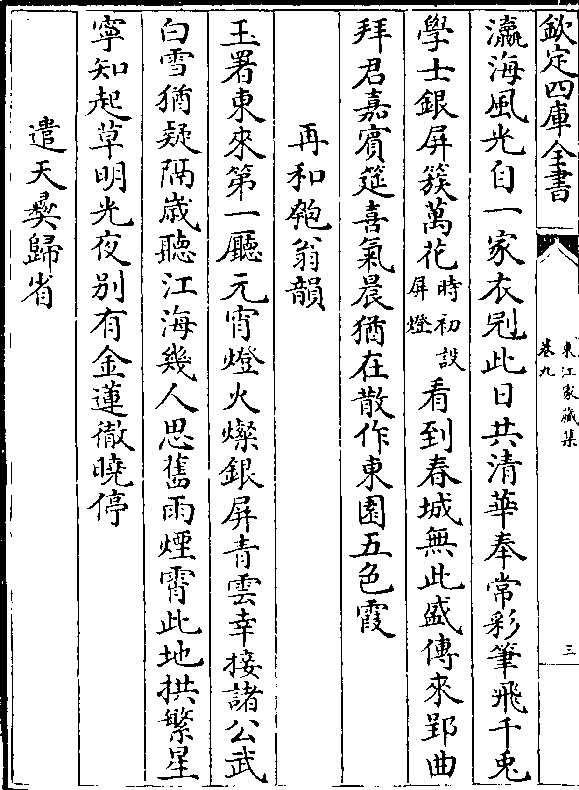 欽定四庫全書
東江家藏集
卷九
三
瀛海風光自一家衣冠此日共清華奉常彩筆飛千兎
學士銀屏簇萬花時初設屏燈看到春城無此盛傳來郢曲
拜君嘉賓筵喜氣晨猶在散作東園五色霞
再和匏翁韻
玉署東來第一廳元宵燈火燦銀屏青雲幸接諸公武
白雪猶疑隔歳聽江海幾人思舊雨煙霄此地拱繁星
寧知起草明光夜别有金蓮徹曉停
遣天彛歸省